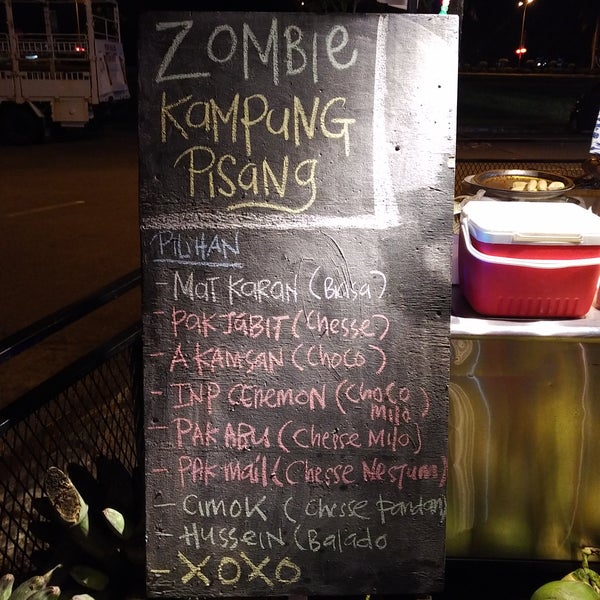 ZOMBIE
KAMPUNG
PISANG
PILIHAN
- MAT KARAN (Biasa)
- PAK JABIT (Chesse)
- A KAMSAN (CHOCO)
- INP CENEMON (CHOCO
MILO)
- PAK ABU (Chesse Milo)
- PAK MAIL (Chesse Nestum)
- CIMOK (Chesse Pandan)
- HUSSEIN (Balado
- XOXO